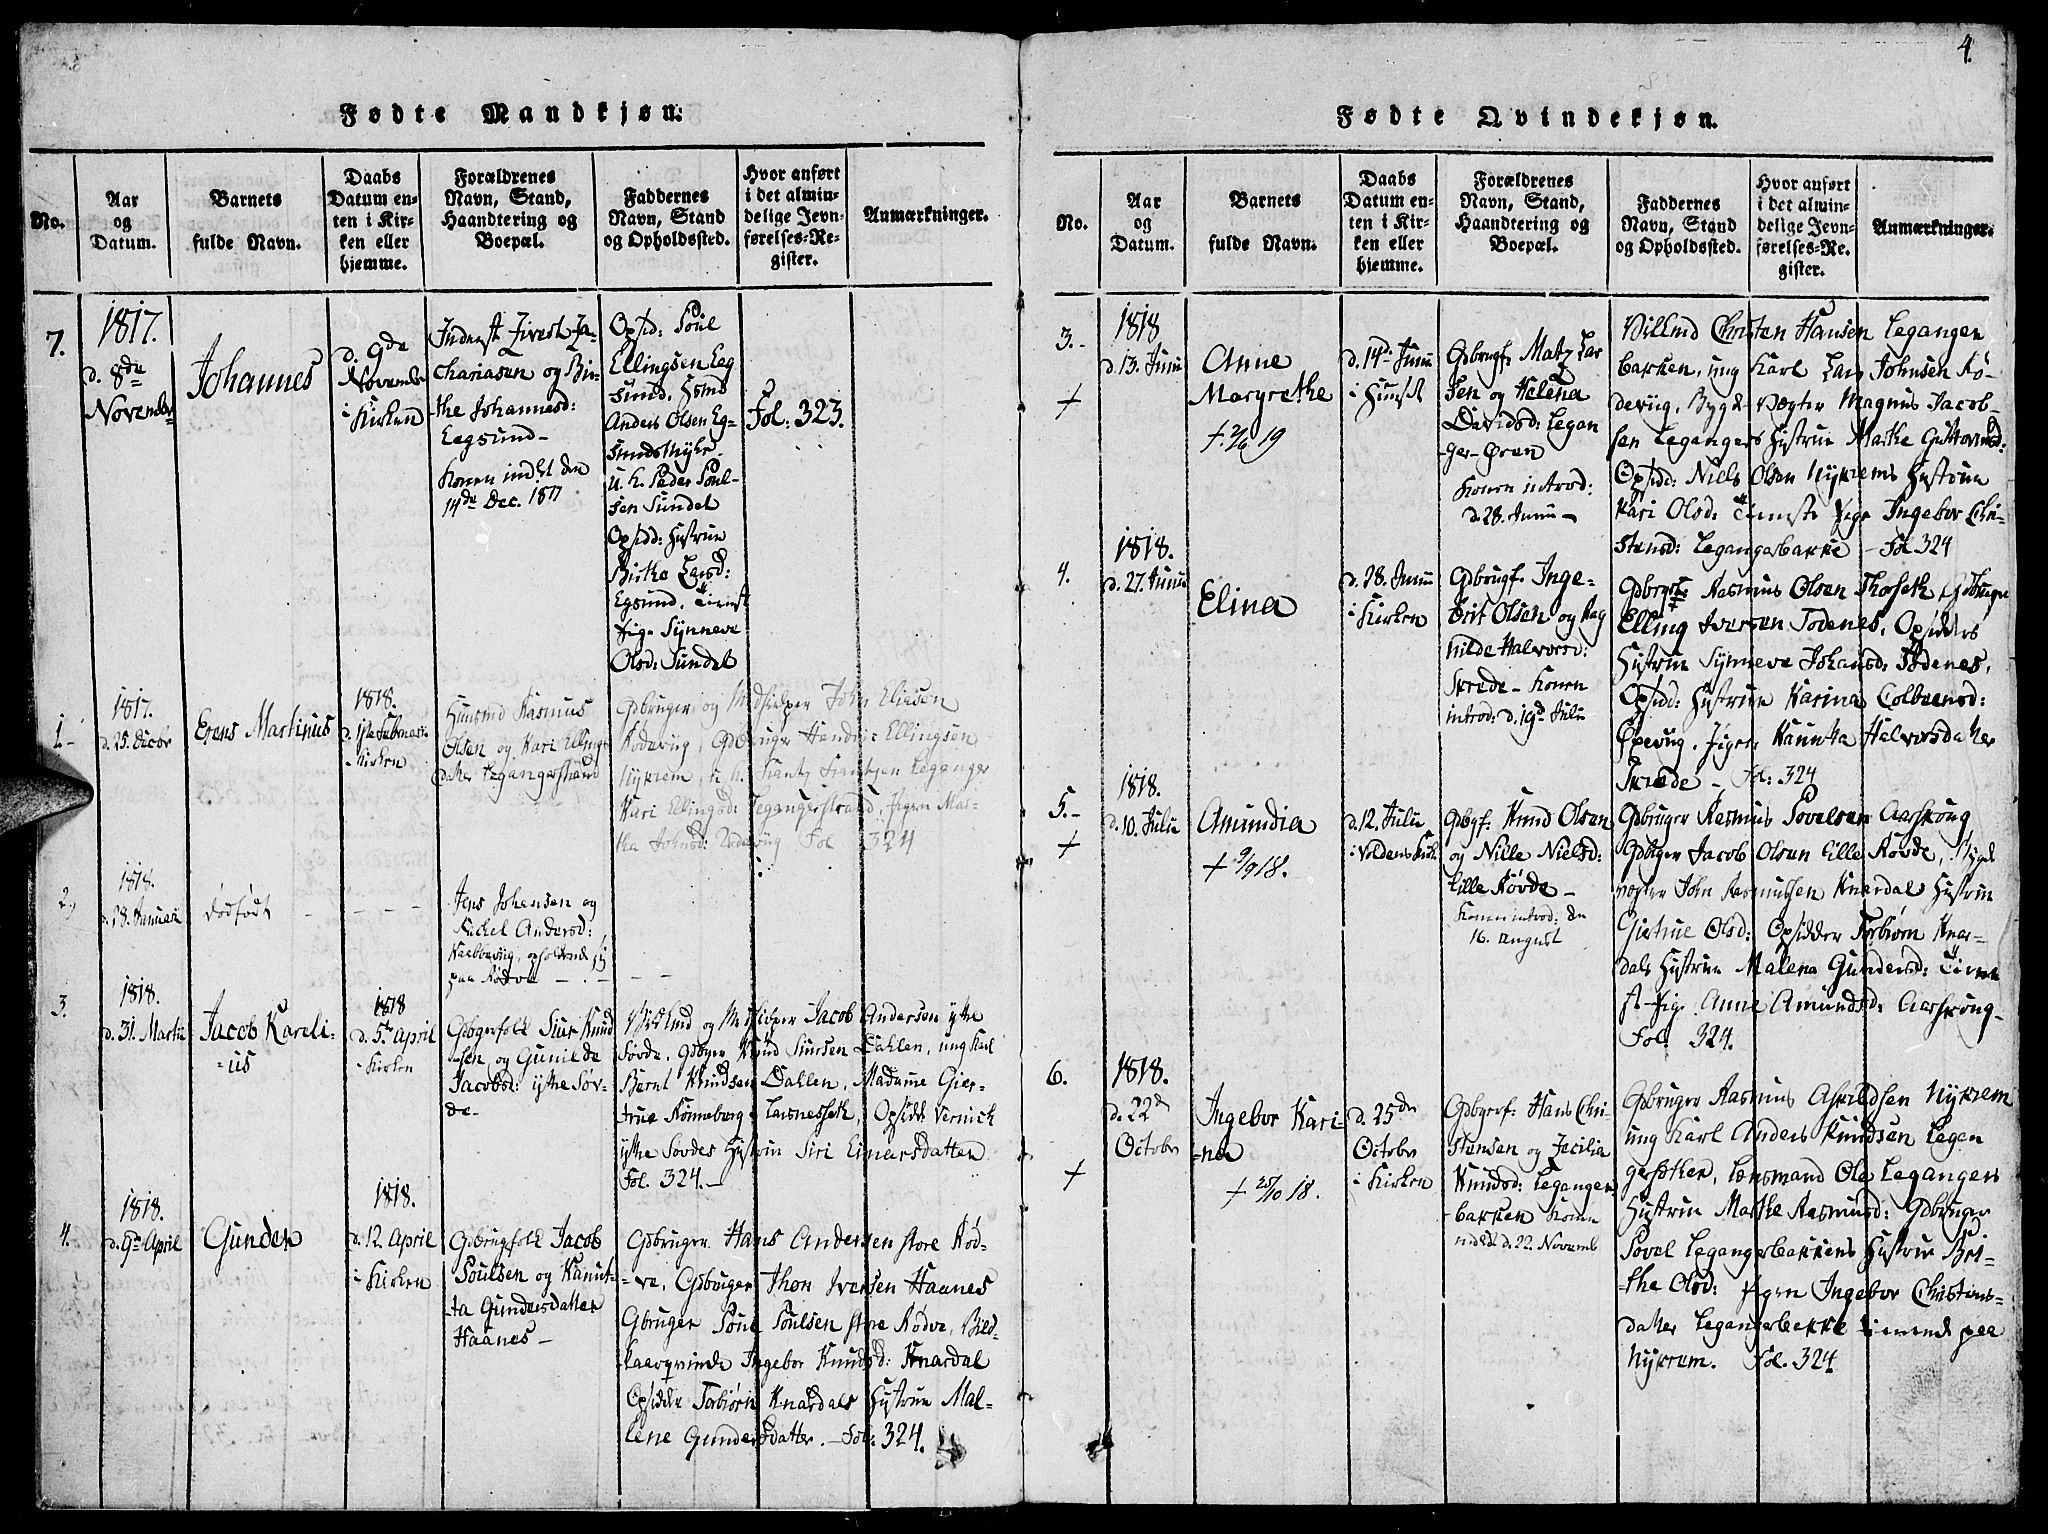 4.
Fødte Mandkjøn.
No.
Aar
og
Datum.
Barnets
fulde Navn.
Daabs
Datum en-
ten i Kir-
ken eller
hjemme.
Forældrenes
Navn, Stand,
Haandtering og
Boepæl.
Faddernes
Navn, Stand
og Opholdssted.
Hvor anført
i det almin-
delige Jevn-
førelses-Re-
gister.
Anmærkninger.
7.
1817.
d. 8de
November
Johannes
d. 9de
November
i Kirken
chariasen og Bir-
the Johannesd:
Eegsund-
Konen indl den
14de Dec. 1817
Opsid: Poul
Ellingsen Eeg
sund,
Anders Olsen Eg-
u. k. Peder Poul-
sen Sundet
Opsidd: Hystrue
Birthe Larsd:
Egsund, Tienst
Pige Synneve
Olsd: Sundet
Fol: 323.
1.-
1817.
d. 25. Decbr
Erens Martinus
1818.
Kirken
Huusmd Rasmus
Olsen og Kari Ellings
datter Legangerstrand
Gdbruger og Medhielper John Eliesen
Rødeviig, Gdbruger Hendric Ellingsen
Nykrem,
Kari Ellingsd: Legangerstrand, Pigen Mar-
tha Johnsd: Rødeviig Fol 324
2.
1818.
d. 28. Januari
dødfødt
Jens Johansen og
Rachel Andersd:
paa Rødve
3.
1818.
d. 31. Martii
Jacob Kareli-
=us
1818
d. 5te April
Kirken
Gdbgerfolk Siur Knud
sen og Gunilde
Jacobsd: ytre Søv-
de-
og Jacob Andersen ytre
Søvde, Gdbger Knud Siursen Dahlen, ung Karl
Bernt Knudsen Dallen, Madame Gier-
true Rønneberg Larsnesseth, Opsidd: Vernick
ytre Søvdes Hystrue Siri Einarsdatter
Fol. 324.-
4.
1818.
d. 9de April
Gunder
1818.
d. 12. April
i Kirken
Gdbrugfolk Jacob
Poulsen og Kanut-
ta Gundersdatter
Haanes-
Gdbruger Hans Andersen store Rød-
-ve, Gdbruger Thon Iversen Haanes
Gbruger Poul Poulsen store Rødve, Bild-
kaarqvinde Ingebor Knudsd: Knardal
Opsidder Torbiørn Knardals Hystrue Mal-
lene Gundersdatter. - Fol: 324.
Fødte Qvindekjøn.
No.
Aar
og
Datum.
Barnets
fulde Navn.
Daabs
Datum en-
ten i Kir-
ken eller
hjemme.
Forældrenes
Navn, Stand,
Haandtering og
Boepæl.
Faddernes
Navn, Stand
og Opholdssted.
Hvor anført
i det almin-
delige Jevn-
førelses-Re-
gister.
Anmærkninger.
3.-
+
1818
d. 13. Junii
Anne
Margrethe
+ 2/6 19
d. 14de Junii
i Huuset
Gdbrugf. Matz Lar
sen og Helena
Davidsd: Legan
ger-Øren
Konen introd:
d. 28. Junii -
Christen Hansen Leganger
bakken, ung Karl Lars Johnsen Rø-
deviig, Bygdevægter Magnus Jacob-
sen Legangers Hystrue Marthe Guttormsd:
Opsidd: Niels Olsen Nykrems Hystrue
Kari Olsd: Tienste Pige Ingebor Chri-
stensd: Legangerbakke - Fol 324
4.
1818.
d. 27. Junii
Elina
d. 28. Junii
i Kirken
Gdbrugf. Inge-
brit Olsen og Rag
nilde Halvorsd:
Skrede - Konen
introd: d. 19de Julii
Gdbrgr: Rasmus Olsen Thorseth, Gdbruger
Elling Iversen Todenes, Opsidders
Hystrue Synneve Johansd: Todenes,
Opsidd: Hystrue Karina Colbeensd:
Øpeviig, Pigen Kanutta Halvorsdatter
Skrede - Fol: 324
5.-
+
1818.
d. 10. Julii
Amundia
+ 9/9 18.
d. 12. Julii
i Voldens Kirk
Gdbgf. Knud Olsen
og Nille Nielsd:
Lille Rövde -
Konen introd: den
16. august
Gdbruger Rasmus Povelsen Aarskoug
Gdbger Jacob Olsen Lille Rövde, Bygde
vægter John Rasmussen Knardals Hystrue
Giertrue Olsd: Opsidder Torbiørn Knar-
dals Hystrue Malena Gundersd: Tiene
ste Pige Anne Amundsd: Aarskoug-
Fol. 324.
6.
+
1818.
d. 22de
October
Ingebor Kari-
=na
+ 25/10 18.
d. 25de
October
i Kirken
Gdbgerf. Hans Chri-
stensen og Zecilia
Knudsd: Leganger
bakken Konen
indledt d. 22. Novemb
Gdbruger Rasmus Askildsen Nykrem
ung Karl Anders Knudsen Legan
gersæter, Lensmand Ole Legangers
Hystrue Marthe Rasmusd: Gdbruger
Povel Legangerbakkens Hystrue Bri-
-the Olsd: Pigen Ingebor Christens-
datter Legangerbakke tienende paa
Nykrem. Fol. 324.